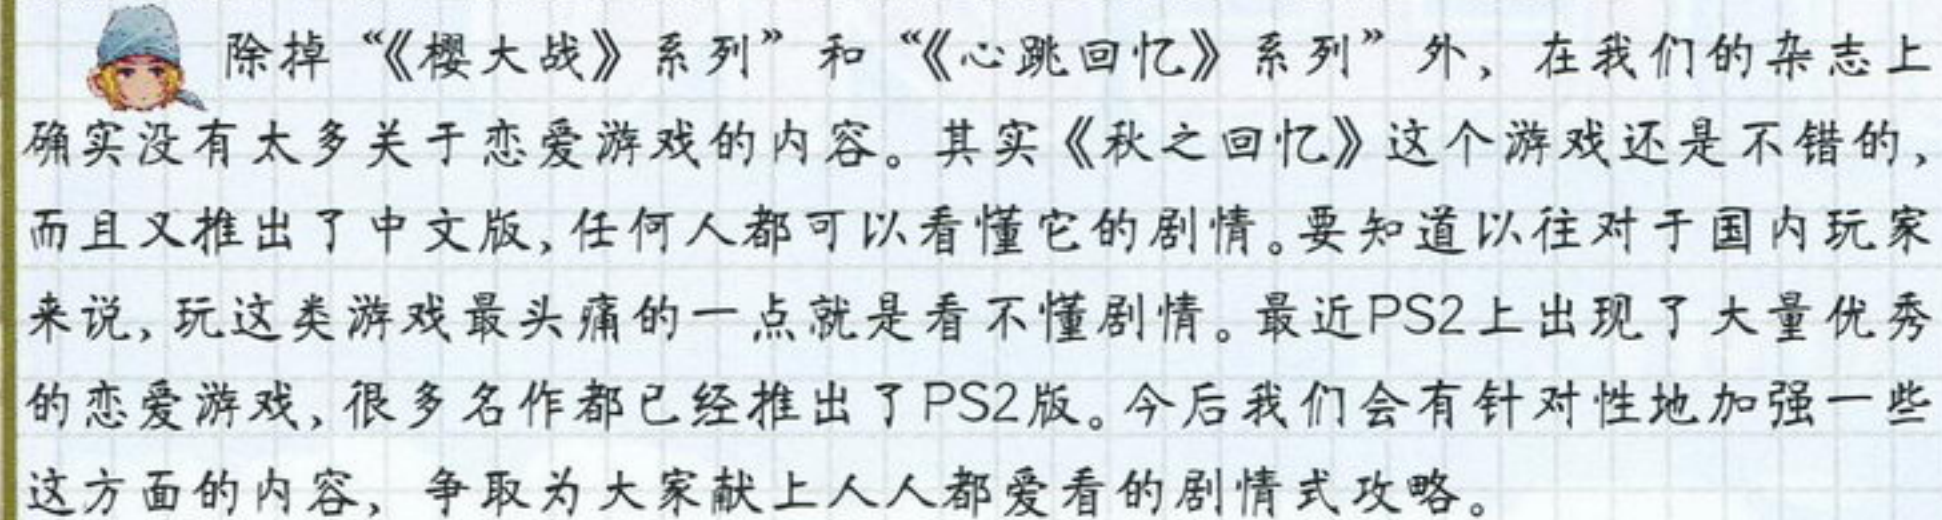 除掉“《樱大战》系列”和“《心跳回忆》系列”外，在我们的杂志上
确实没有太多关于恋爱游戏的内容。其实《秋之回忆》这个游戏还是不错的，
而且又推出了中文版，任何人都可以看懂它的剧情。要知道以往对于国内玩家
来说，玩这类游戏最头痛的一点就是看不懂剧情。最近PS2上出现了大量优秀
的恋爱游戏，很多名作都已经推出了PS2版。今后我们会有针对性地加强一些
这方面的内容，争取为大家献上人人都爱看的剧情式攻略。